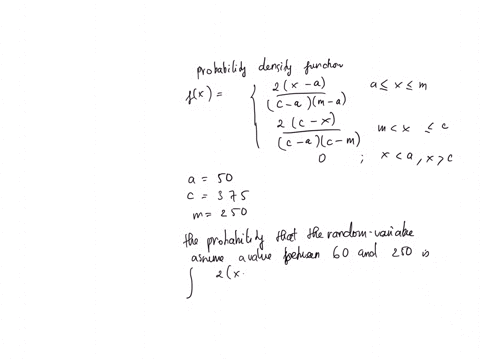 probability density function
f(x) = { 2(x-a) / (c-a)(m-a)    a ≤ x ≤ m
2(c-x) / (c-a)(c-m)    m < x ≤ c
0 ; x < a, x > c
a = 50
c = 375
m = 250
the probability that the random-variable
assume a value between 60 and 250 is
∫ 2(x-